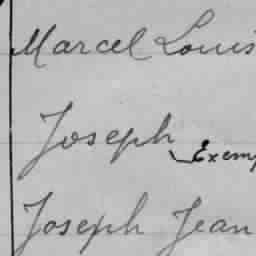 Marcel Louis
Joseph
Exemp
Joseph Jean